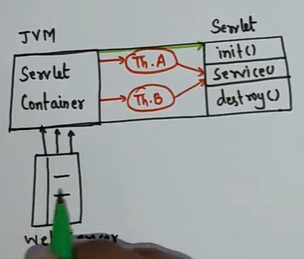 JVM
Servlet
Container
Th.A
Th.B
Servlet
init()
service()
destroy()